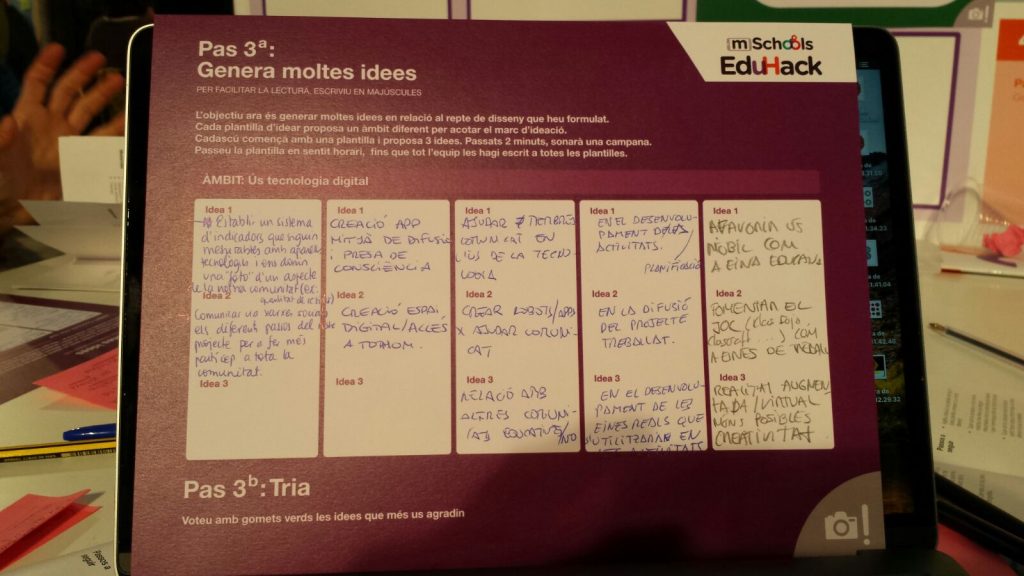 Pas 3ª:
Genera moltes idees
PER FACILITAR LA LECTURA, ESCRIVIU EN MAJÚSCULES
mSchools
EduHack
L'objectiu ara és generar moltes idees en relació al repte de disseny que heu formulat.
Cada plantilla d'idear proposa un àmbit diferent per acotar el marc d'ideació.
Cadascú comença amb una plantilla i proposa 3 idees. Passats 2 minuts, sonarà una campana.
Passeu la plantilla en sentit horari, fins que tot l'equip les hagi escrit a totes les plantilles.
ÀMBIT: Ús tecnologia digital
Idea 1
Establir un sistema
d'indicadors que siguin
mesurables amb
tecnològic i ens donin
una "foto" d'un aspecte
de la nostra comunitat (ex:
qualitat de
Idea 2
Comunicar via xarxes socials
els diferent passos del
projecte per a fer més
partícep a tota la
comunitat.
Idea 3
Idea 1
CREACIÓ APP
MITJÀ DE DIFUSIÓ
I PRESA DE
CONSCIÈNCIA
Idea 2
CREACIÓ ESPAI
DIGITAL/ACCÉS
A TOTHOM.
Idea 3
Idea 1
AJUDAR MEMBRES
COMUNITAT EN
L'ÚS DE LA TECNO-
LOGIA
Idea 2
CREAR ROBOTS/APPS
X AJUDAR COMUNI-
TAT
Idea 3
RELACIÓ AMB
ALTRES COMUNI-
TATS EDUCATIVES/NO
Idea 1
EN EL DESENVOLU-
PAMENT DE LES
ACTIVITATS.
PLANIFICACIÓ
Idea 2
EN LA DIFUSIÓ
DEL PROJECTE
TREBALLAT.
Idea 3
EN EL DESENVOLU-
PAMENT DE LES
EINES REALS QUE
S'UTILITZARAN EN
LES ACTIVITATS
Idea 1
AFAVORIR ÚS
MÒBIL COM
A EINA EDUCATIVA
Idea 2
FOMENTAR EL
JOC (Class Dojo,
Classcraft...) COM
A EINES DE TREBALL
Idea 3
REALITAT AUGMEN
TADA/VIRTUAL
MONS POSIBLES
CREATIVITAT
Pas 3ᵇ: Tria
Voteu amb gomets verds les idees que més us agradin